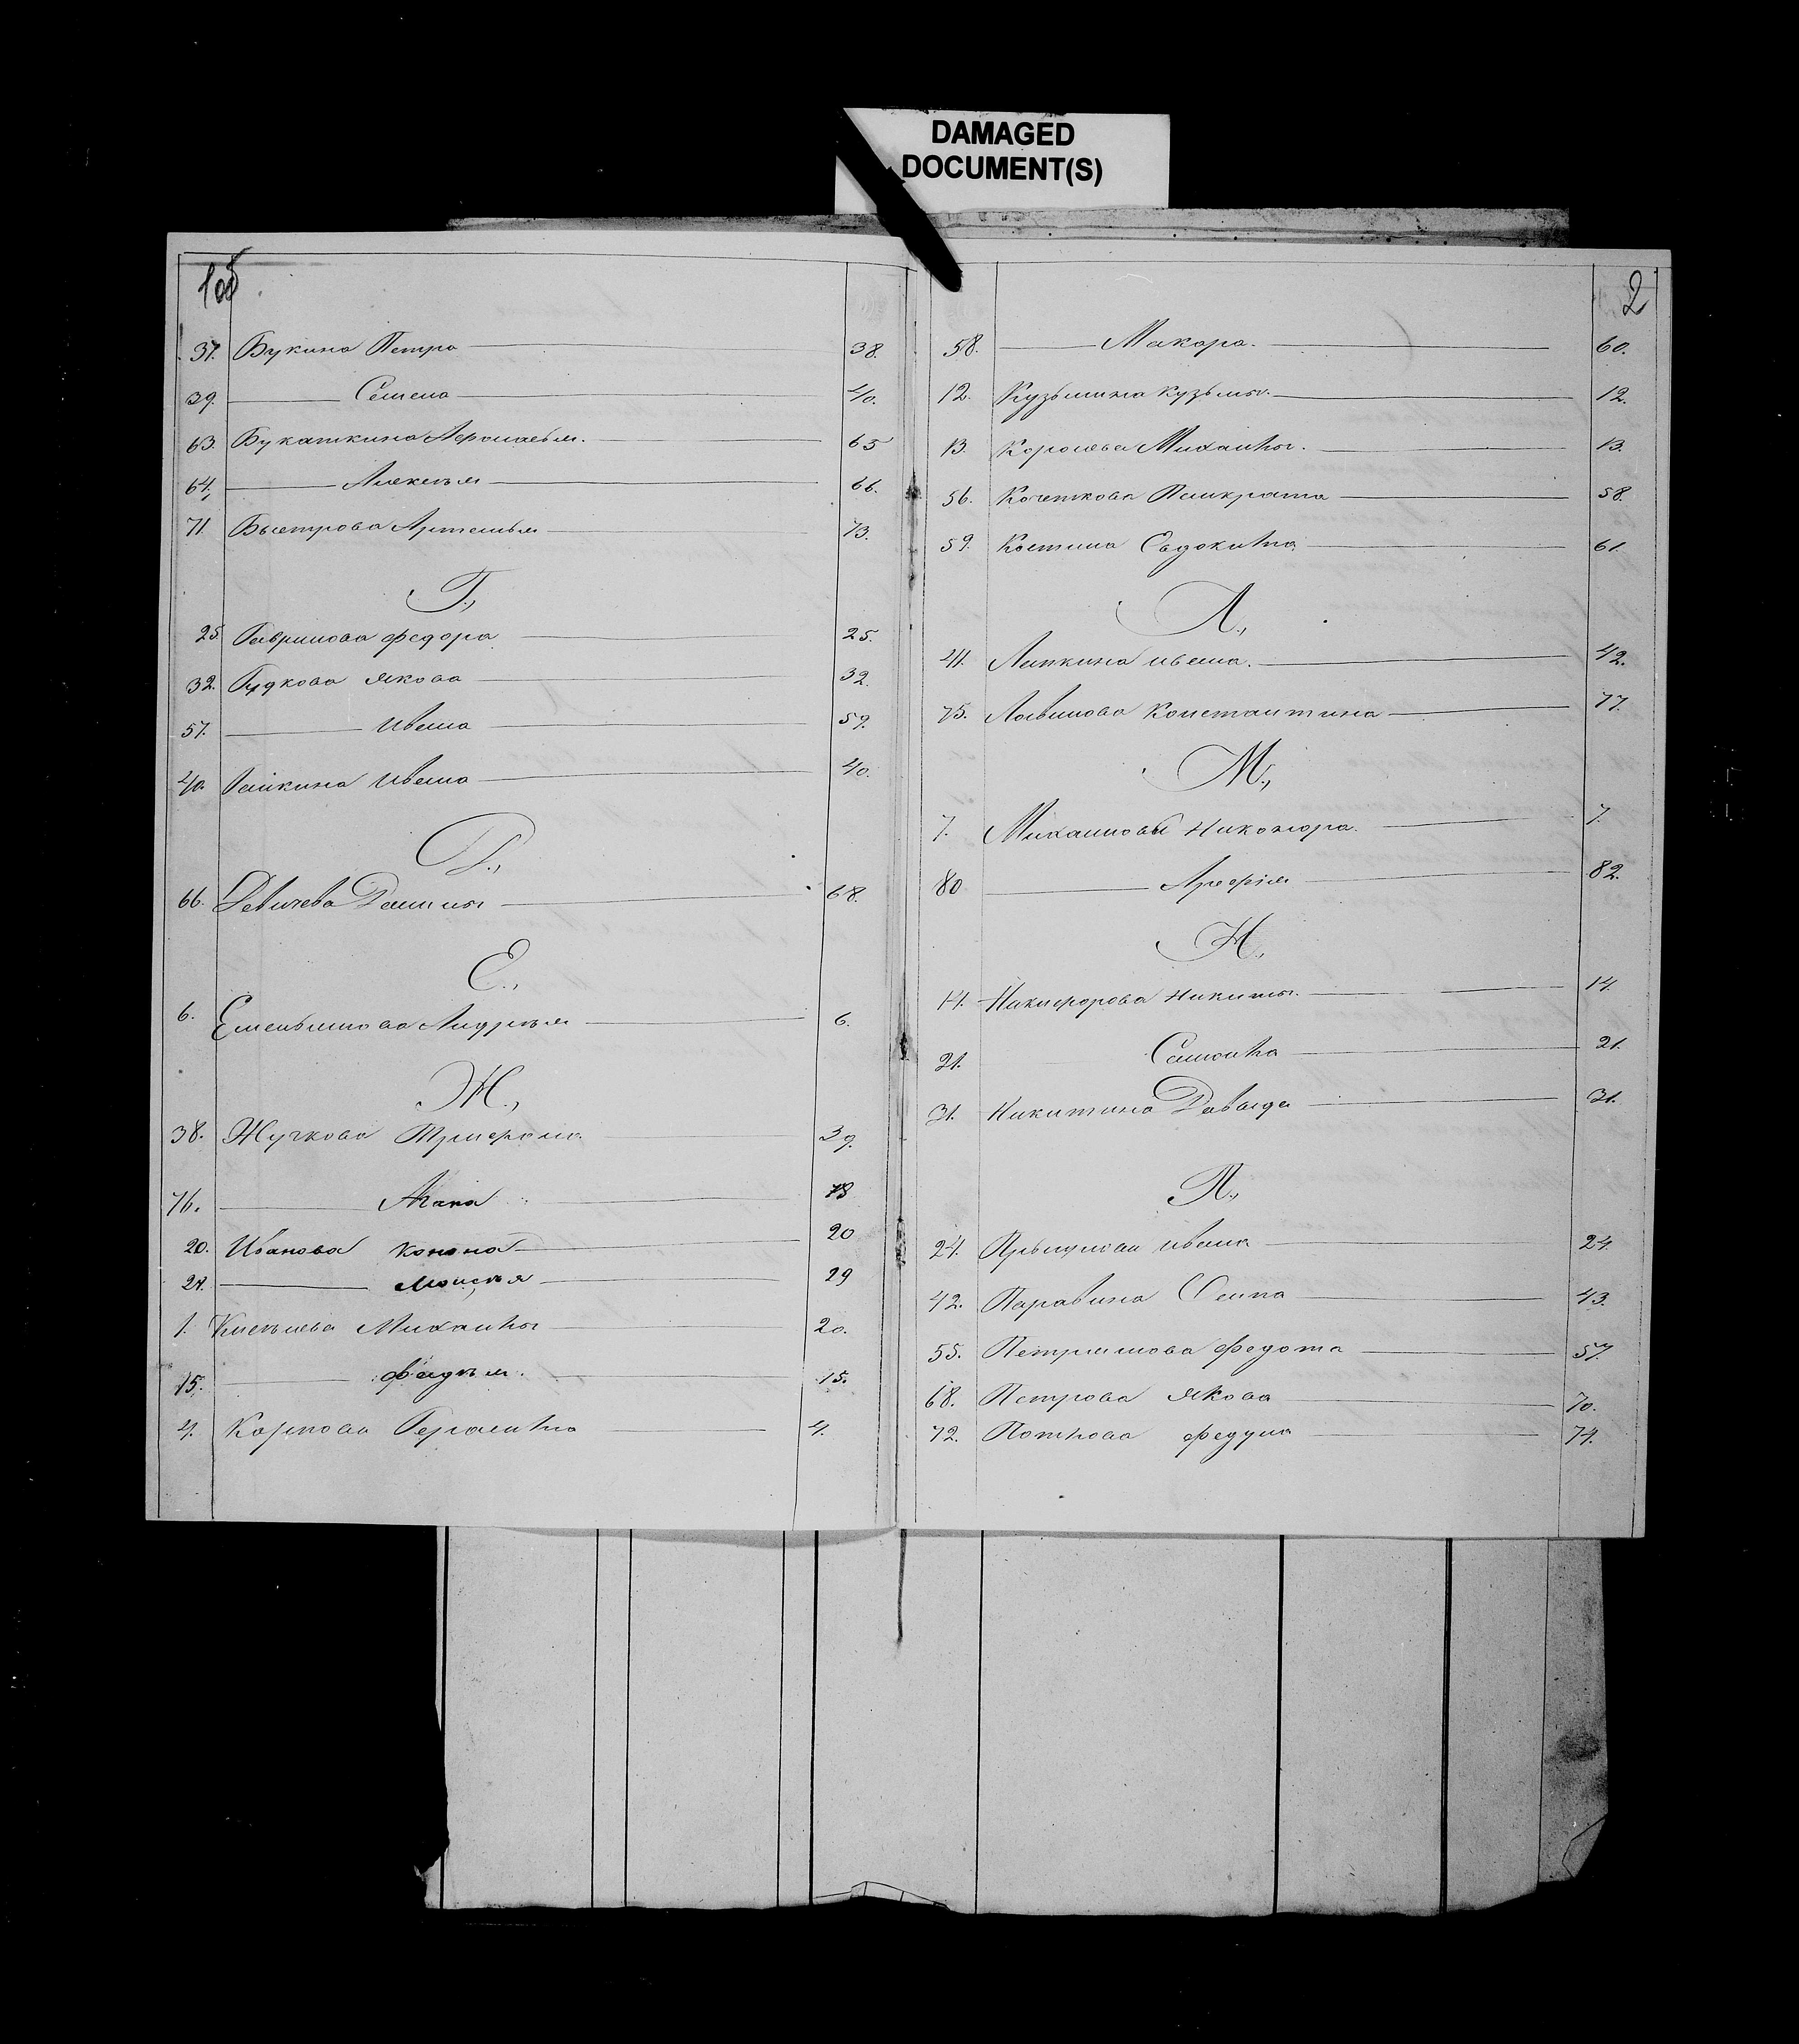 DAMAGED
DOCUMENT(S)
1об
37. Букина Петра 38.
39. Семена 40.
63. Букаткина Аѳонасья. 65
64. Алексѣя 66.
71. Быстрова Артемья 73.
Г.,
25. Гаврилова Федора 25.
32. Гудкова Якова 32.
57. Ивана 59.
40 Галкина Ивана 40.
Д.,
66. Девичева Данилы 68.
Е.,
6. Емельянова Андрѣя 6.
Ж.,
38. Жучкова Трифона 39.
76. 78
20. Иванова Конона 20
28. Моисѣя 29
1. Михайлы 20.
15. Фадѣя. 15.
4. Карпова Герасима 4.
2
58. Макара. 60.
12. Кузьмина Кузьмы. 12.
13. Королева Михайлы. 13.
56. Кочеткова Панкрата 58.
59. Костина Евдокима 61.
Л.,
41. Лапкина Ивана. 42.
75. Логвинова Константина 77.
М.,
7. Михайлова Никонора. 7.
80 Арефія 82.
Н.,
14. Никифорова Никиты. 14.
21. Самойла 21.
31. Никитина Давыда 31.
П.,
24. Ивана 24.
42. Паравина Осипа 43.
55. Петрянова Федота 57.
68. Петрова Якова 70.
72. Федула 74.